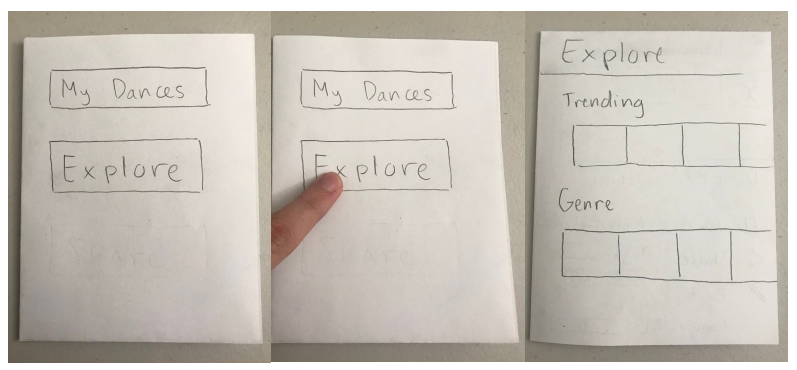 My Dances
Explore
Share
My Dances
Explore
Share
Explore
Trending
Genre